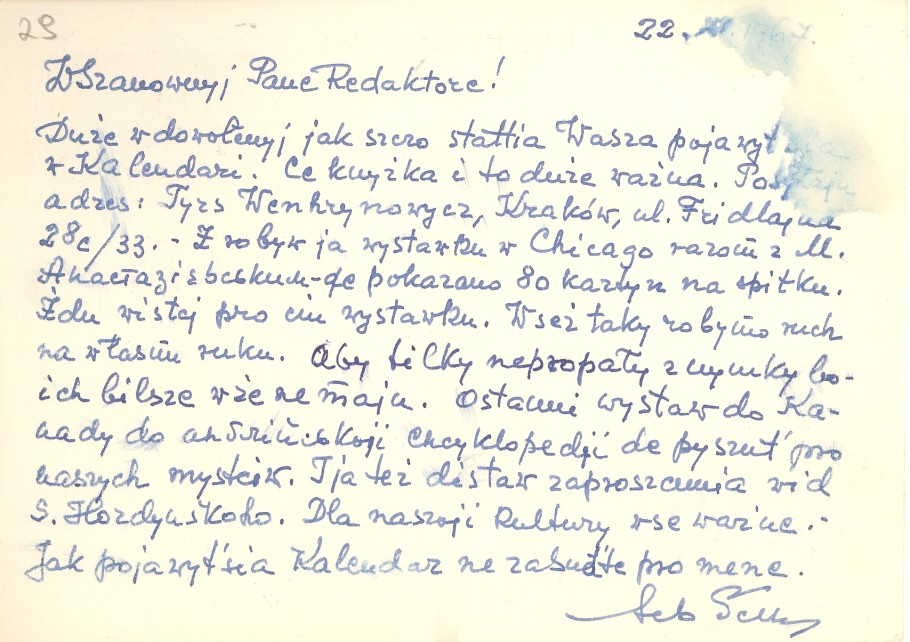 29
22. 1967.
WSzanownyj Pane Redaktore!
Duże wdowołenyj jak szczo stattia Wasza pojawyt
w Kalendari. Ce knyżka i to duże ważna. Posyłaju
adres: Tyrs Wenhrynowycz, Kraków, ul. Fridlajna
28c/33. - Zrobyw ja wystawku w Chicago razom z M.
Anastaziewskym - de pokazano 80 kartyn na spitku.
Żdu wistej pro ciu wystawku. Wseż taky robymo ruch
na własnu ruku. Aby tilky nepropały znymky bo-
ich bilsze wże ne maju. Ostanni wystaw do Ka-
nady do anhlińskoji encyklopedji de pyszut' pro
naszych mystciw. I ja też distaw zaproszenia wid
S. Hordynskoho. Dla naszoji kultury wse ważne. -
Jak pojawyt'sia Kalendar ne zabudte pro mene.